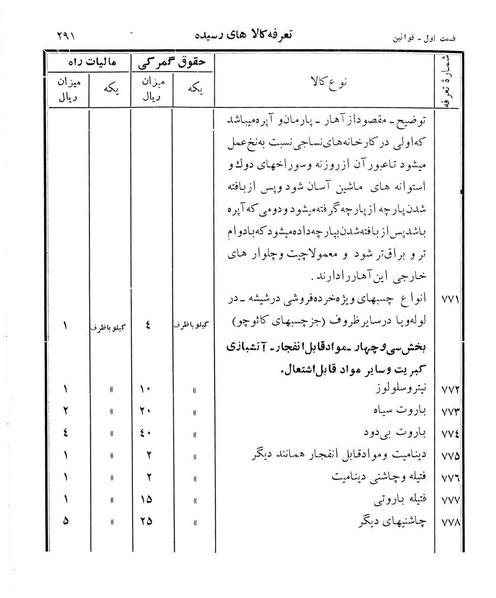 قسمت اول ـ قوانین
تعرفه کالا های رسیده
۲۹۱
شمارهٔ تعرفه
نوع کالا
حقوق گمرکی
مالیات راه
یکه
میزان ریال
یکه
میزان ریال
توضیح ـ مقصود از آهار ـ پارمان و آپره میباشد
که اولی در کارخانه‌های نساجی نسبت به نخ عمل
میشود تا عبور آن از روزنه و سوراخهای دوك و
استوانه های ماشین آسان شود و پس از بافته
شدن پارچه از پارچه گرفته میشود و دومی که آپره
باشد پس از بافته شدن بپارچه داده میشود که بادوام
تر و براق تر شود و معمولا چیت و چلوار های
خارجی این آهار را دارند.
۷۷۱ انواع چسبهای ویژه خرده فروشی در شیشه ـ در
لوله و یا در سایر ظروف (جز چسبهای کائوچو) کیلو باظرف ۴ کیلو باظرف ۱
بخش سی و چهار ـ مواد قابل انفجار ـ آتشبازی
کبریت و سایر مواد قابل اشتعال.
۷۷۲ نیترو سلولوز » ۱۰ » ۱
۷۷۳ باروت سیاه » ۲۰ » ۲
۷۷۴ باروت بی‌دود » ۴۰ » ۴
۷۷۵ دینامیت و مواد قابل انفجار همانند دیگر » ۲ » ۱
۷۷۶ فتیله و چاشنی دینامیت » ۲ » ۱
۷۷۷ فتیله باروتی » ۱۵ » ۱
۷۷۸ چاشنیهای دیگر » ۲۵ » ۵